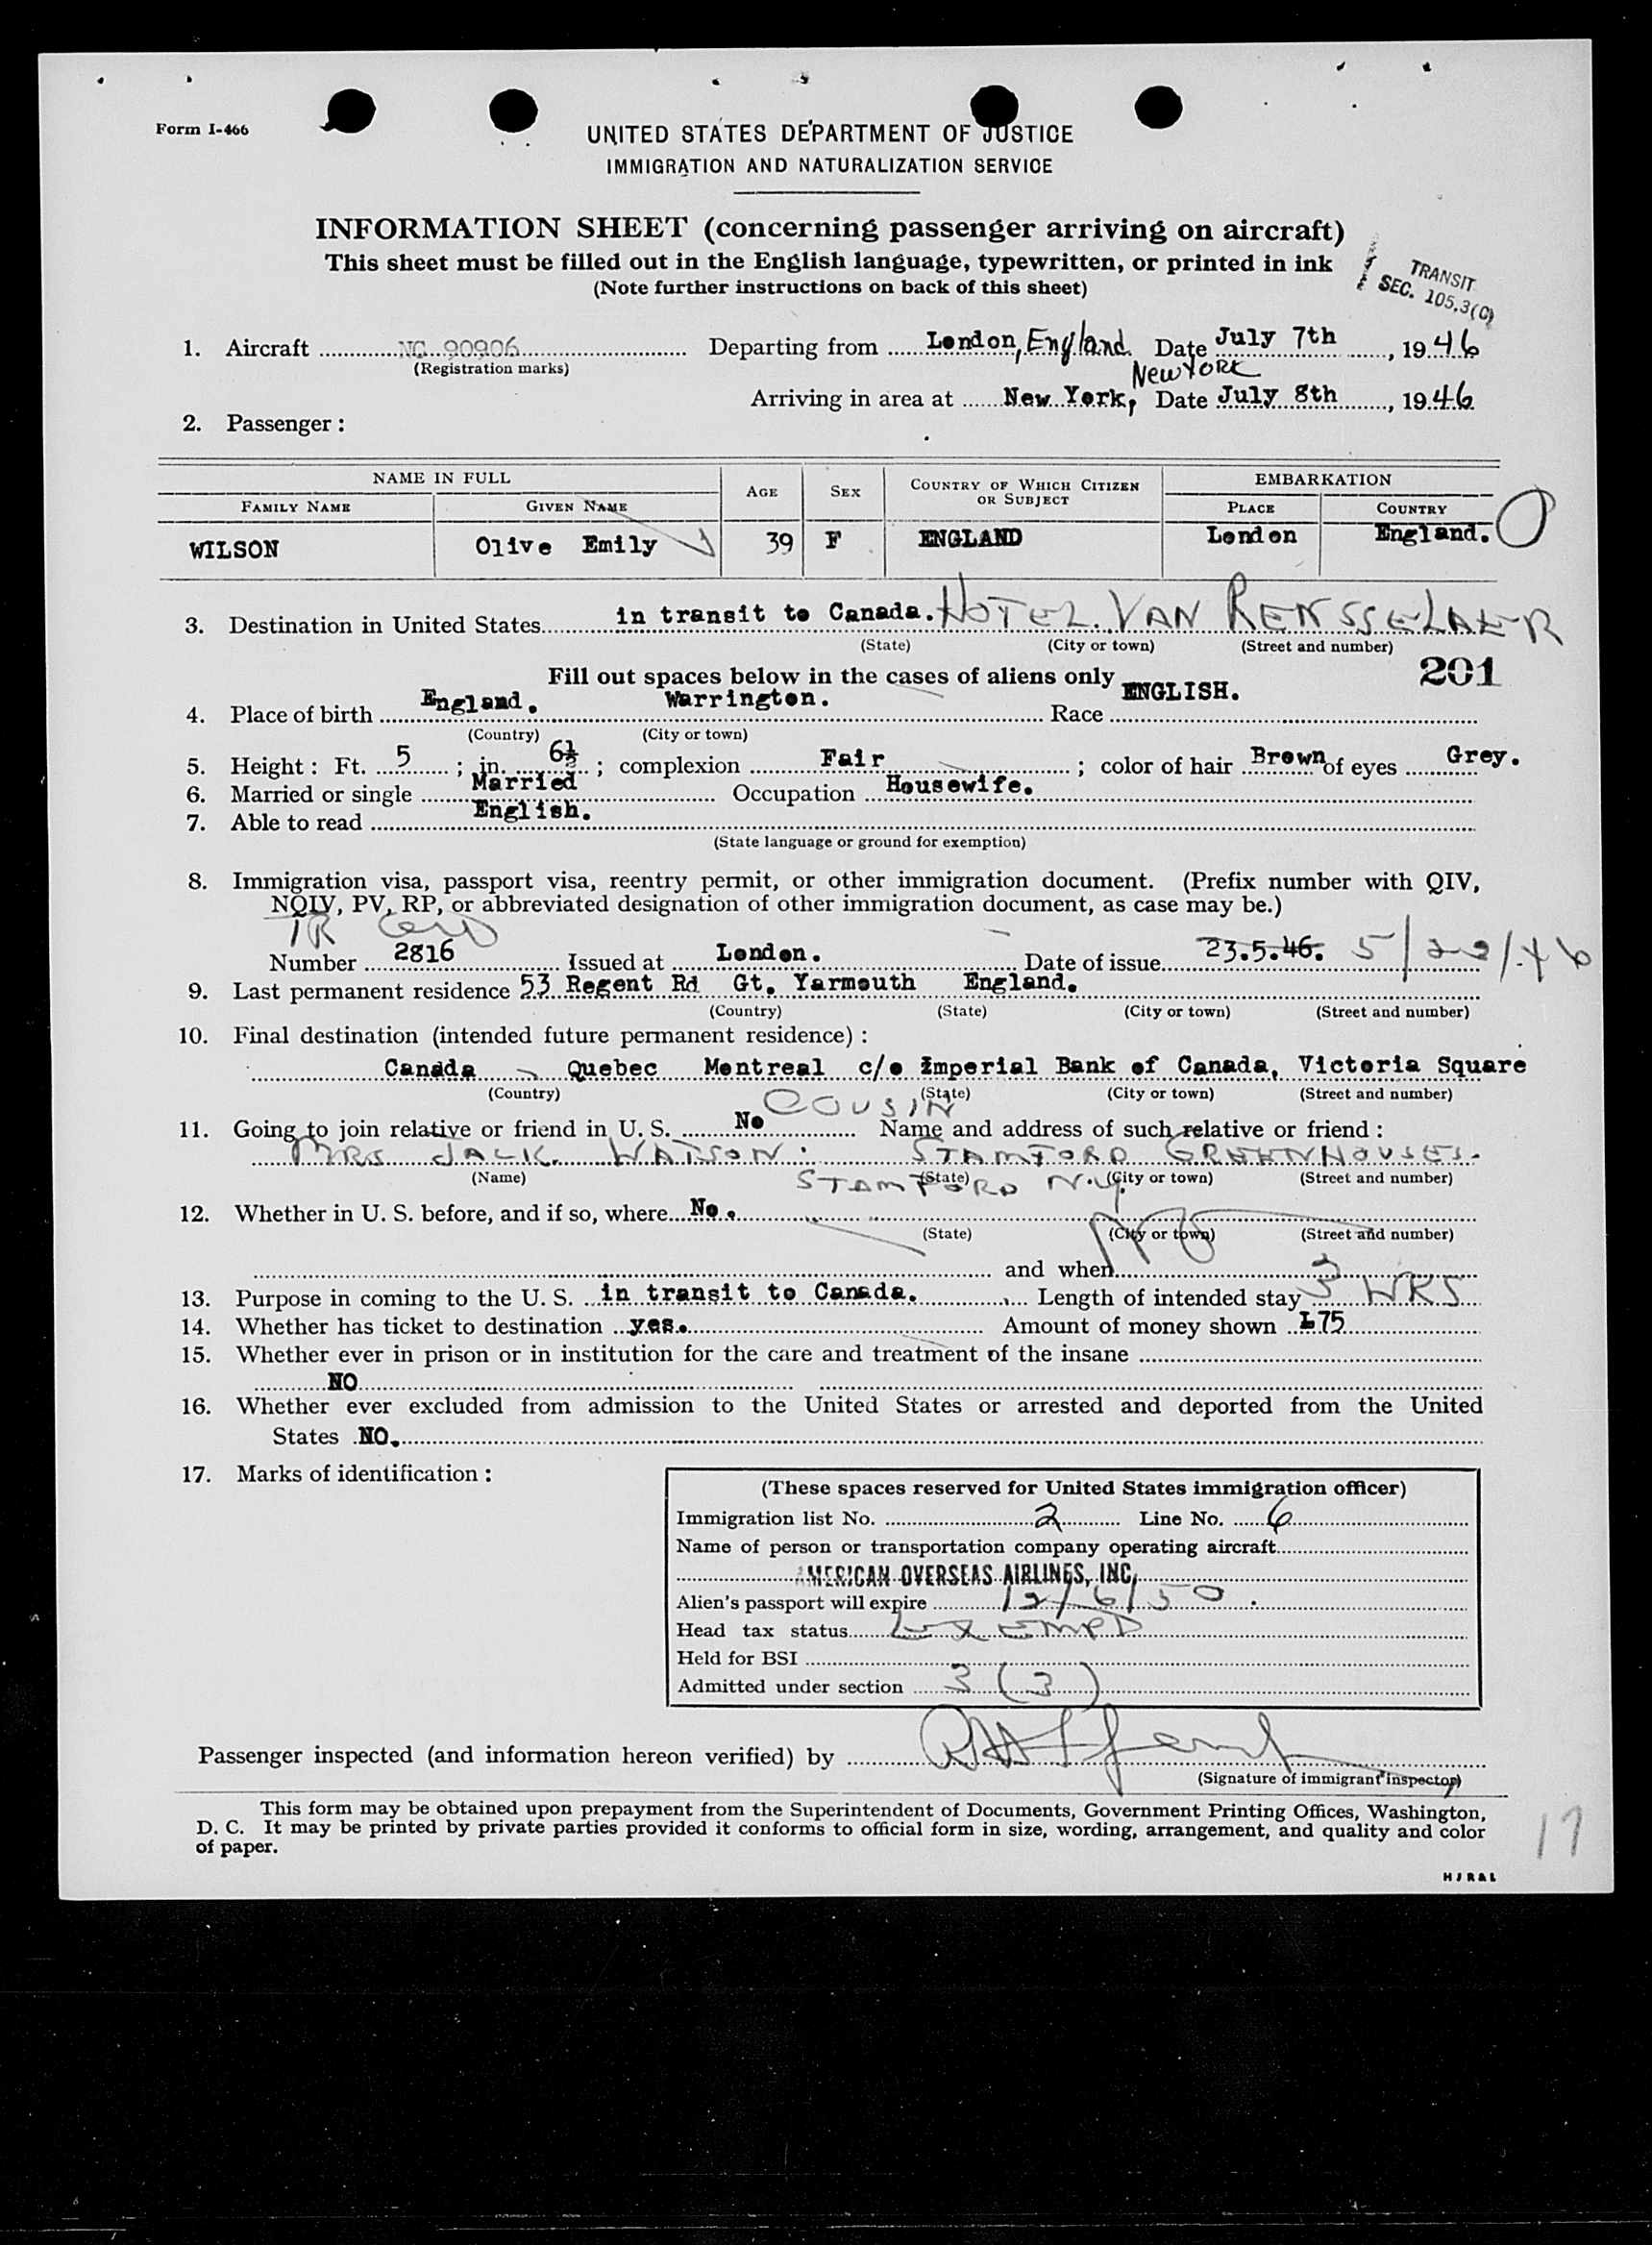 Form I-466
UNITED STATES DEPARTMENT OF JUSTICE
IMMIGRATION AND NATURALIZATION SERVICE
INFORMATION SHEET (concerning passenger arriving on aircraft)
This sheet must be filled out in the English language, typewritten, or printed in ink
(Note further instructions on back of this sheet)
TRANSIT
SEC. 105.3(C)
1. Aircraft NC 90906 Departing from London, England. Date July 7th, 1946
(Registration marks)
New York
Arriving in area at New York, Date July 8th, 1946
2. Passenger:
NAME IN FULL AGE SEX COUNTRY OF WHICH CITIZEN OR SUBJECT EMBARKATION
FAMILY NAME GIVEN NAME PLACE COUNTRY
WILSON Olive Emily 39 F ENGLAND London England.
3. Destination in United States in transit to Canada. HOTEL VAN RENSSELAER
(State) (City or town) (Street and number)
201
Fill out spaces below in the cases of aliens only
4. Place of birth England. Warrington. Race ENGLISH.
(Country) (City or town)
5. Height: Ft. 5; in. 6½; complexion Fair; color of hair Brown of eyes Grey.
6. Married or single Married Occupation Housewife.
7. Able to read English.
(State language or ground for exemption)
8. Immigration visa, passport visa, reentry permit, or other immigration document. (Prefix number with QIV,
NQIV, PV, RP, or abbreviated designation of other immigration document, as case may be.)
TR Cert
Number 2816 Issued at London. Date of issue 23.5.46. 5/22/46
9. Last permanent residence 53 Regent Rd Gt. Yarmouth England.
(Country) (State) (City or town) (Street and number)
10. Final destination (intended future permanent residence):
Canada Quebec Montreal c/o Imperial Bank of Canada, Victoria Square
(Country) (State) (City or town) (Street and number)
COUSIN
11. Going to join relative or friend in U. S. No Name and address of such relative or friend:
MRS JACK WATSON. STAMFORD GREENHOUSES.
(Name) (State) (City or town) (Street and number)
STAMFORD N.Y.
12. Whether in U. S. before, and if so, where No.
(State) (City or town) (Street and number)
and when
13. Purpose in coming to the U. S. in transit to Canada. Length of intended stay 3 WKS
14. Whether has ticket to destination yes. Amount of money shown £75
15. Whether ever in prison or in institution for the care and treatment of the insane
NO
16. Whether ever excluded from admission to the United States or arrested and deported from the United
States NO.
17. Marks of identification:
(These spaces reserved for United States immigration officer)
Immigration list No. 2 Line No. 6
Name of person or transportation company operating aircraft
AMERICAN OVERSEAS AIRLINES, INC.
Alien's passport will expire 12/6/50
Head tax status EXEMPD
Held for BSI
Admitted under section 3 (3)
Passenger inspected (and information hereon verified) by
(Signature of immigrant inspector)
This form may be obtained upon prepayment from the Superintendent of Documents, Government Printing Offices, Washington,
D. C. It may be printed by private parties provided it conforms to official form in size, wording, arrangement, and quality and color
of paper.
17
HJR&L